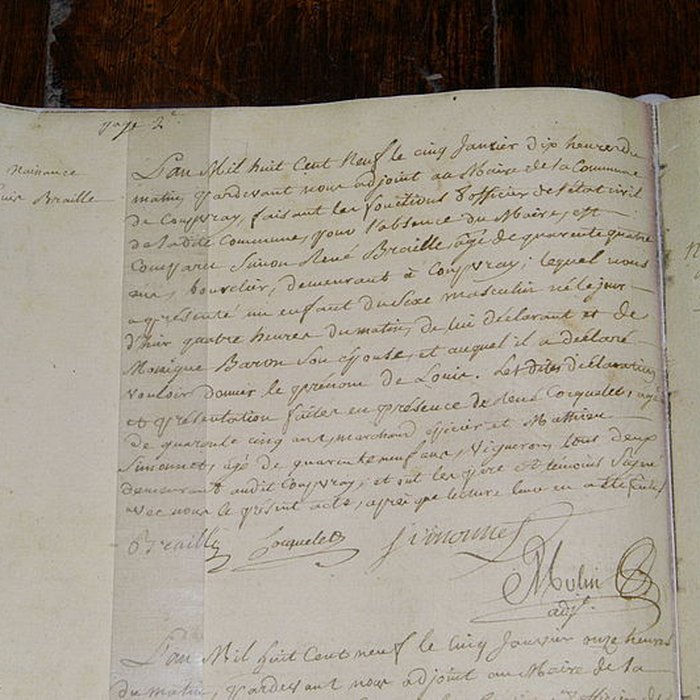 page 2e
Naissance
Louis Braille
L'an Mil huit Cent Neuf le cinq Janvier dix heures du
matin, pardevant nous adjoint au Maire de la Commune
de Coupvray, faisant les fonctions d'officier de l'état civil
de la dite Commune, pour l'absence du Maire, est
Comparu Simon René Braille, agé de quarente quatre
ans, bourelier, demeurant à Coupvray; lequel nous
a présenté un enfant du Sexe masculin né le jour
d'hier quatre heures du matin, de lui déclarant et de
Monique Baron Son épouse, et auquel il a déclaré
vouloir donner le prénom de Louis. Les dites déclaration
et présentation faites en présence de Coequelet, agé
de quarante cinq ans, marchand épicier et Mathieu
Simonnet, agé de quarante neuf ans, Vigneron, tout deux
demeurant audit Coupvray; et ont les père et témoins Signé
avec nous le présent acte, après que lecture leur en a été faite
Braille Coequelet Simonnet
Mulin
adjt.
L'an Mil huit Cent neuf le Cinq Janvier onze heures
du matin, pardevant nous adjoint au Maire de la